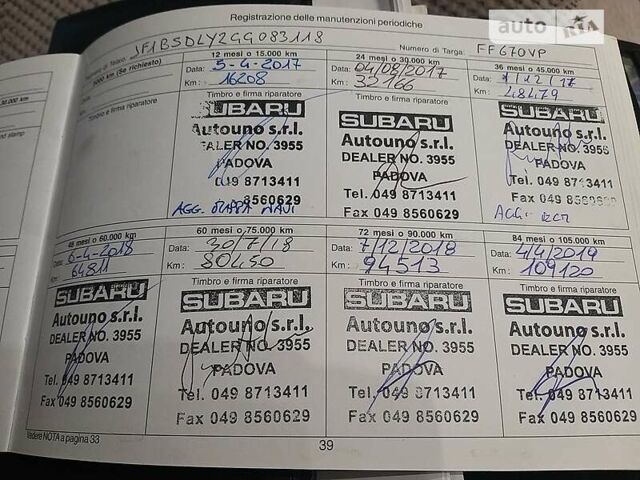 Registrazione delle manutenzioni periodiche
auto RIA
Numero di Telaio: JF1BSDLY2GG083118
Numero di Targa: FF670VP
12 mesi o 15.000 km
Data: 5-4-2017
Km: 16208
Timbro e firma riparatore
SUBARU
Autouno s.r.l.
DEALER NO. 3955
PADOVA
049 8713411
8560629
AGG. MAPPA NAVI
24 mesi o 30.000 km
Data: 04/08/2017
Km: 32166
Timbro e firma riparatore
SUBARU
Autouno s.r.l.
DEALER NO. 3955
PADOVA
Tel. 049 8713411
Fax 049 8560629
36 mesi o 45.000 km
Data: 1/12/17
Km: 48479
Timbro e firma riparatore
SUBARU
Autouno s.r.l.
DEALER NO. 3955
PADOVA
Tel. 049 8713411
Fax 049 8560629
AGG.
(Se richiesto)
Timbro e firma riparatore
30.000 km
stamp
48 mesi o 60.000 km
Data: 6-4-2018
Km: 64811
Timbro e firma riparatore
SUBARU
Autouno s.r.l.
DEALER NO. 3955
PADOVA
Tel. 049 8713411
Fax 049 8560629
60 mesi o 75.000 km
Data: 30/7/18
Km: 80450
Timbro e firma riparatore
SUBARU
Autouno s.r.l.
DEALER NO. 3955
PADOVA
Tel. 049 8713411
Fax 049 8560629
72 mesi o 90.000 km
Data: 7/12/2018
Km: 94513
Timbro e firma riparatore
SUBARU
Autouno s.r.l.
DEALER NO. 3955
PADOVA
Tel. 049 8713411
Fax 049 8560629
84 mesi o 105.000 km
Data: 4/4/2019
Km: 109120
Timbro e firma riparatore
SUBARU
Autouno s.r.l.
DEALER NO. 3955
PADOVA
Tel. 049 8713411
Fax 049 8560629
Vedere NOTA a pagina 33
39